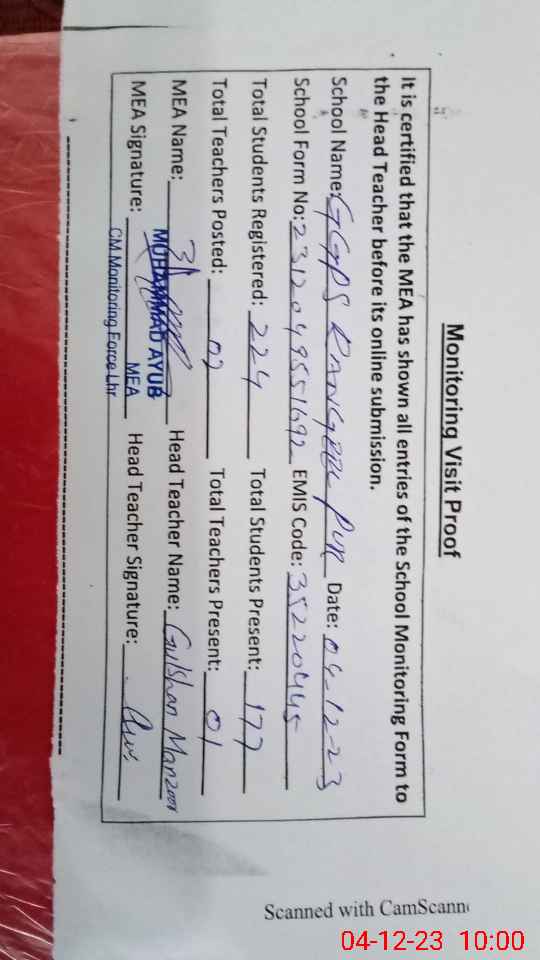 Monitoring Visit Proof
It is certified that the MEA has shown all entries of the School Monitoring Form to
the Head Teacher before its online submission.
School Name: GGPS RANGEEL PUR Date: 04-12-23
School Form No: 2312049551692 EMIS Code: 35220445
Total Students Registered: 224 Total Students Present: 177
Total Teachers Posted: 02 Total Teachers Present: 01
MEA Name: MUHAMMAD AYUB Head Teacher Name: Gulshan Manzoor
MEA Signature: MEA Head Teacher Signature:
CM Monitoring Force Lhr
Scanned with CamScann
04-12-23 10:00